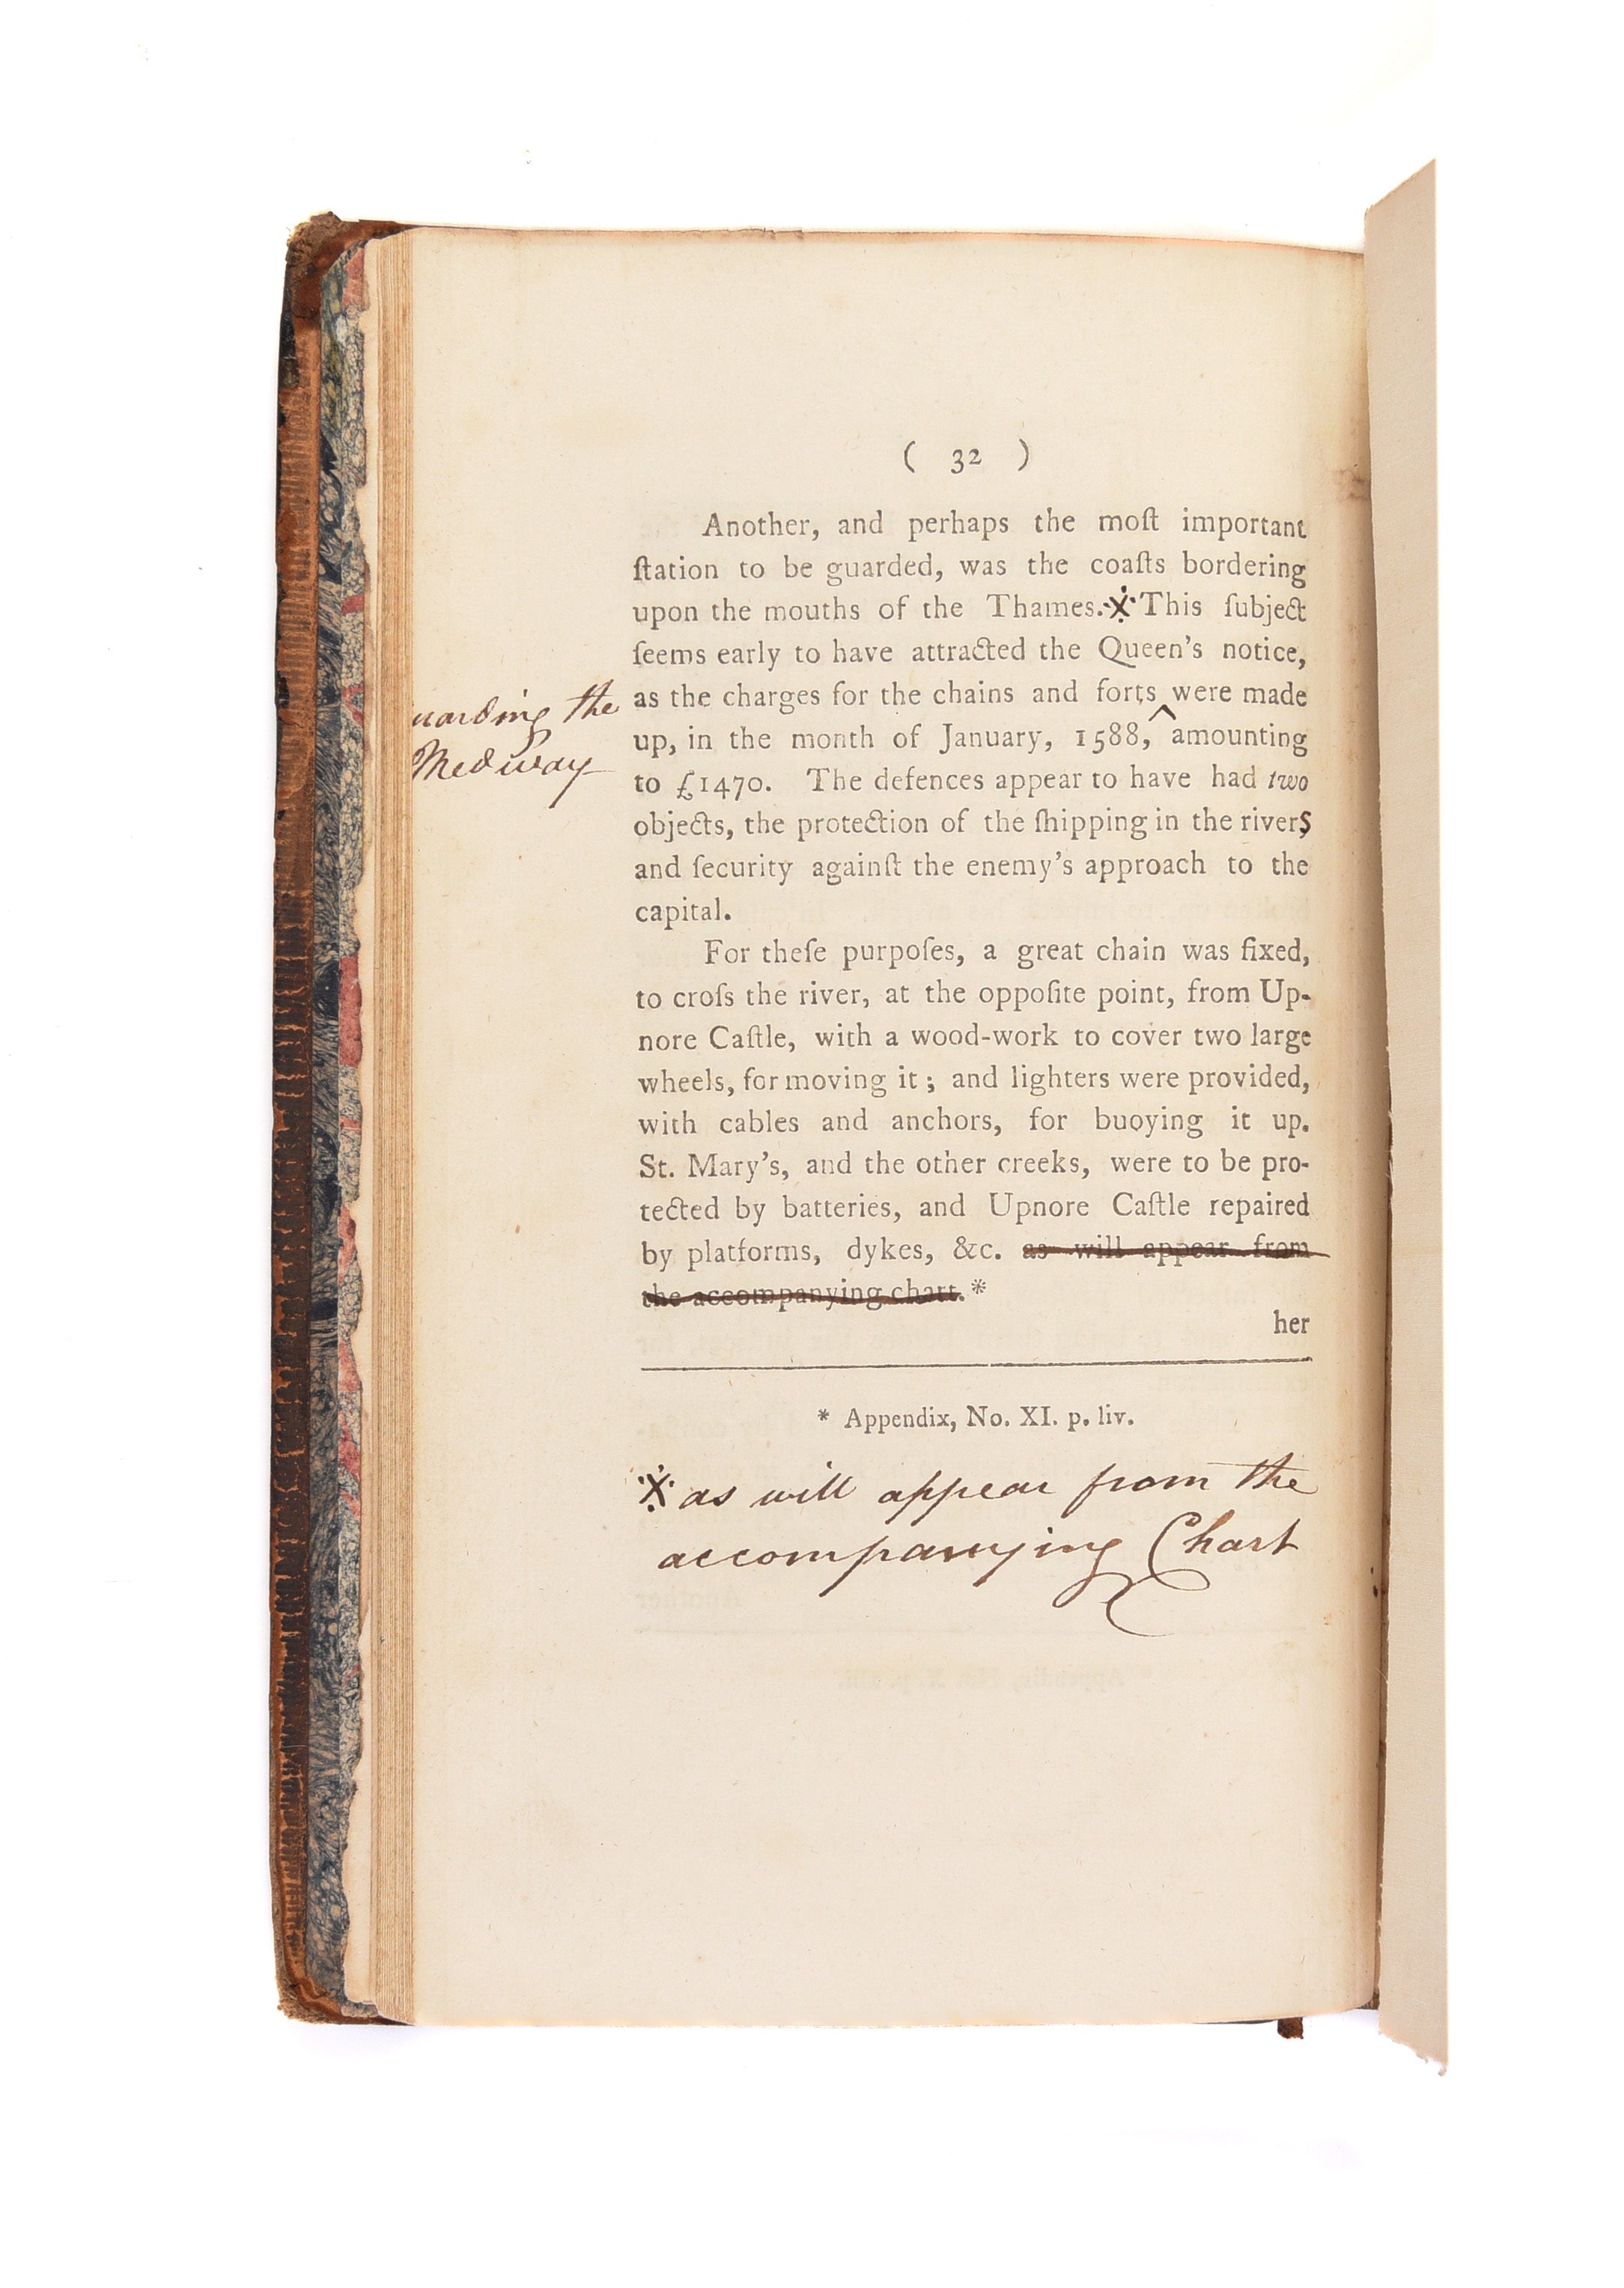 ( 32 )
Another, and perhaps the moſt important
ſtation to be guarded, was the coaſts bordering
upon the mouths of the Thames.※This ſubject
ſeems early to have attracted the Queen's notice,
as the charges for the chains and forts‸were made
uarding the
Medway
up, in the month of January, 1588, amounting
to £1470. The defences appear to have had two
objects, the protection of the ſhipping in the rivers
and ſecurity againſt the enemy's approach to the
capital.
For theſe purpoſes, a great chain was fixed,
to croſs the river, at the oppoſite point, from Up-
nore Caſtle, with a wood-work to cover two large
wheels, for moving it; and lighters were provided,
with cables and anchors, for buoying it up.
St. Mary's, and the other creeks, were to be pro-
tected by batteries, and Upnore Caſtle repaired
by platforms, dykes, &c. as will appear from
the accompanying chart.*
her
* Appendix, No. XI. p. liv.
※ as will appear from the
accompanying Chart